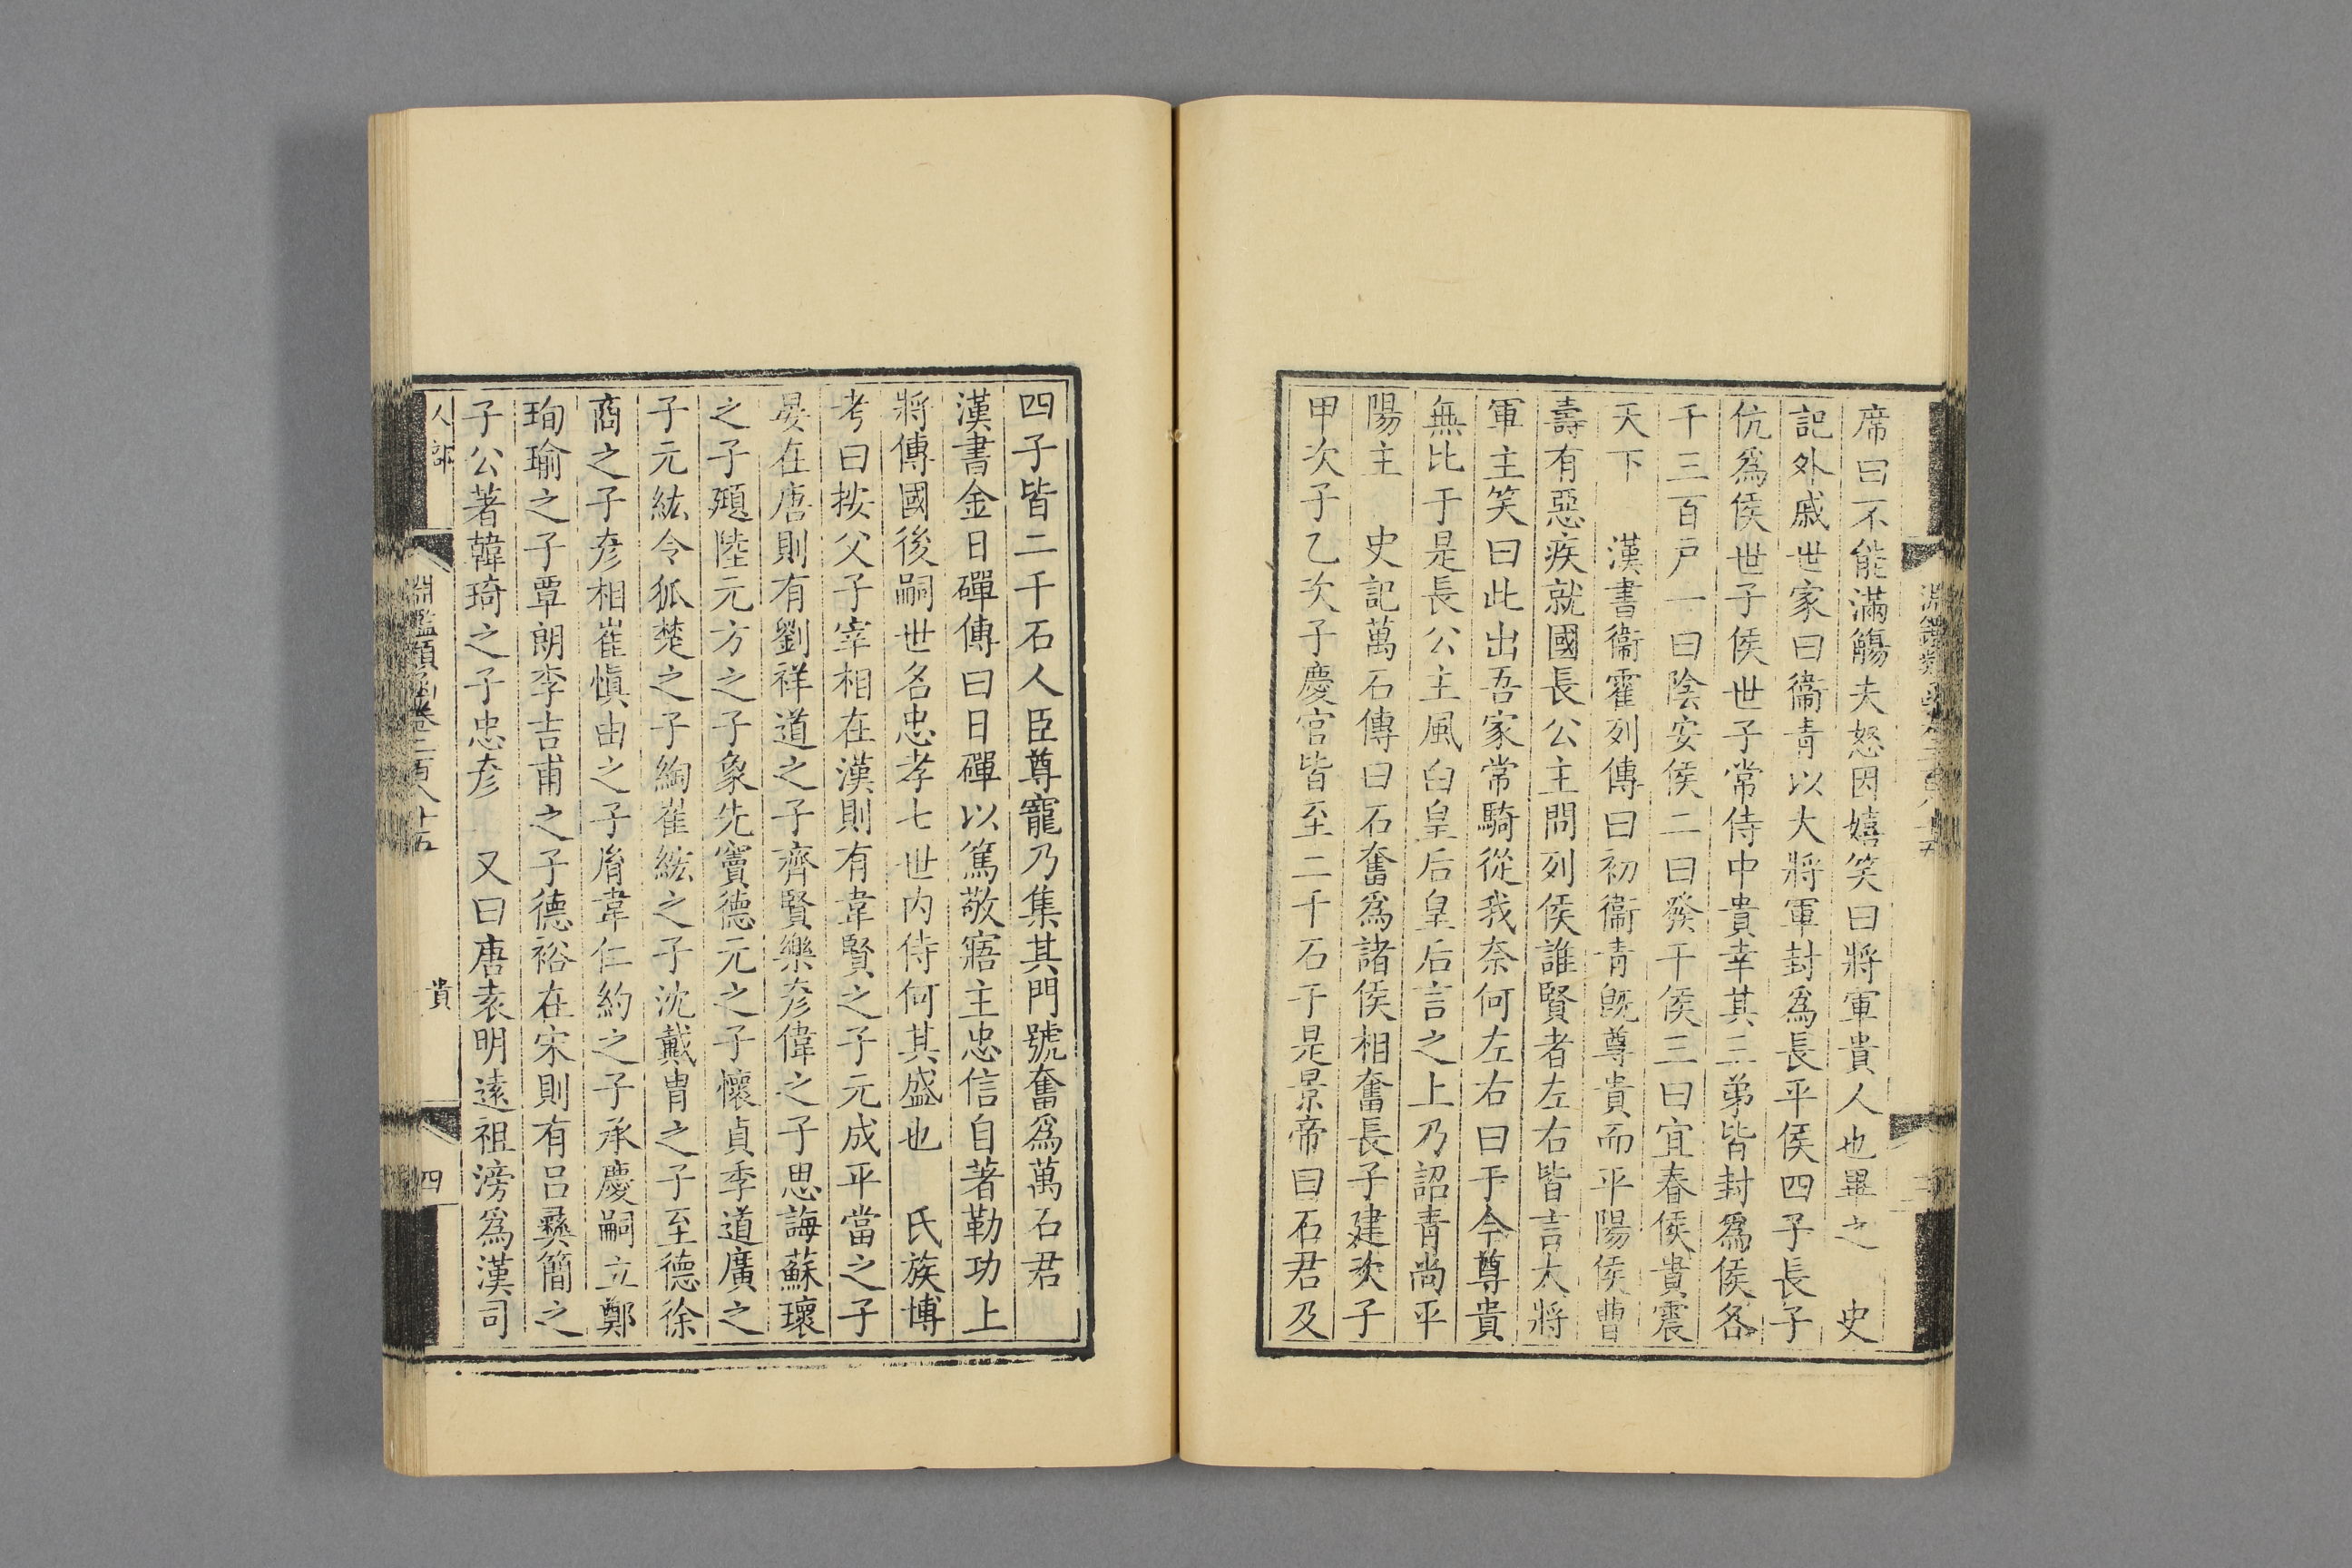 席曰不能滿觴夫怒因嬉笑曰將軍貴人也畢之　史
記外戚世家曰衞青以大將軍封爲長平侯四子長子
伉爲侯世子侯世子常侍中貴幸其三弟皆封爲侯各
千三百戸一曰陰安侯二曰發干侯三曰宜春侯貴震
天下　漢書衞霍列傳曰初衞青旣尊貴而平陽侯曹
壽有惡疾就國長公主問列侯誰賢者左右皆言大將
軍主笑曰此出吾家常騎從我奈何左右曰于今尊貴
無比于是長公主風白皇后皇后言之上乃詔青尚平
陽主　史記萬石傳曰石奮爲諸侯相奮長子建次子
甲次子乙次子慶官皆至二千石于是景帝曰石君及
四子皆二千石人臣尊寵乃集其門號奮爲萬石君
漢書金日磾傳曰日磾以篤敬寤主忠信自著勒功上
將傳國後嗣世名忠孝七世内侍何其盛也　氏族博
考曰按父子宰相在漢則有韋賢之子元成平當之子
晏在唐則有劉祥道之子齊賢樂彦偉之子思誨蘇瓌
之子頲陸元方之子象先竇德元之子懷貞季道廣之
子元紘令狐楚之子綯崔鉉之子沈戴胄之子至德徐
商之子彦相崔愼由之子胤韋仁約之子承慶嗣立鄭
珣瑜之子覃朗李吉甫之子德裕在宋則有呂彝簡之
子公著韓琦之子忠彦　又曰唐袁明遠祖滂爲漢司
人部
淵鑑類函卷二百八十五
貴
四